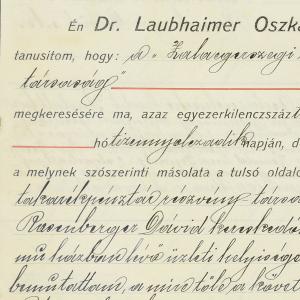 Én Dr. Laubhaimer Oszká
tanusítom, hogy: a „Zalaegerszegi
társaság"
megkeresésére ma, azaz egyezerkilenczszáz
hó tizennyolczadik napján, d
a melynek szószerinti másolata a tulsó oldalo
takarékpénztár részvény társa
Rosenberger Dávid kereskedő
mu házban lévő üzleti helyisége
bemutattam, a mire tőle a követ